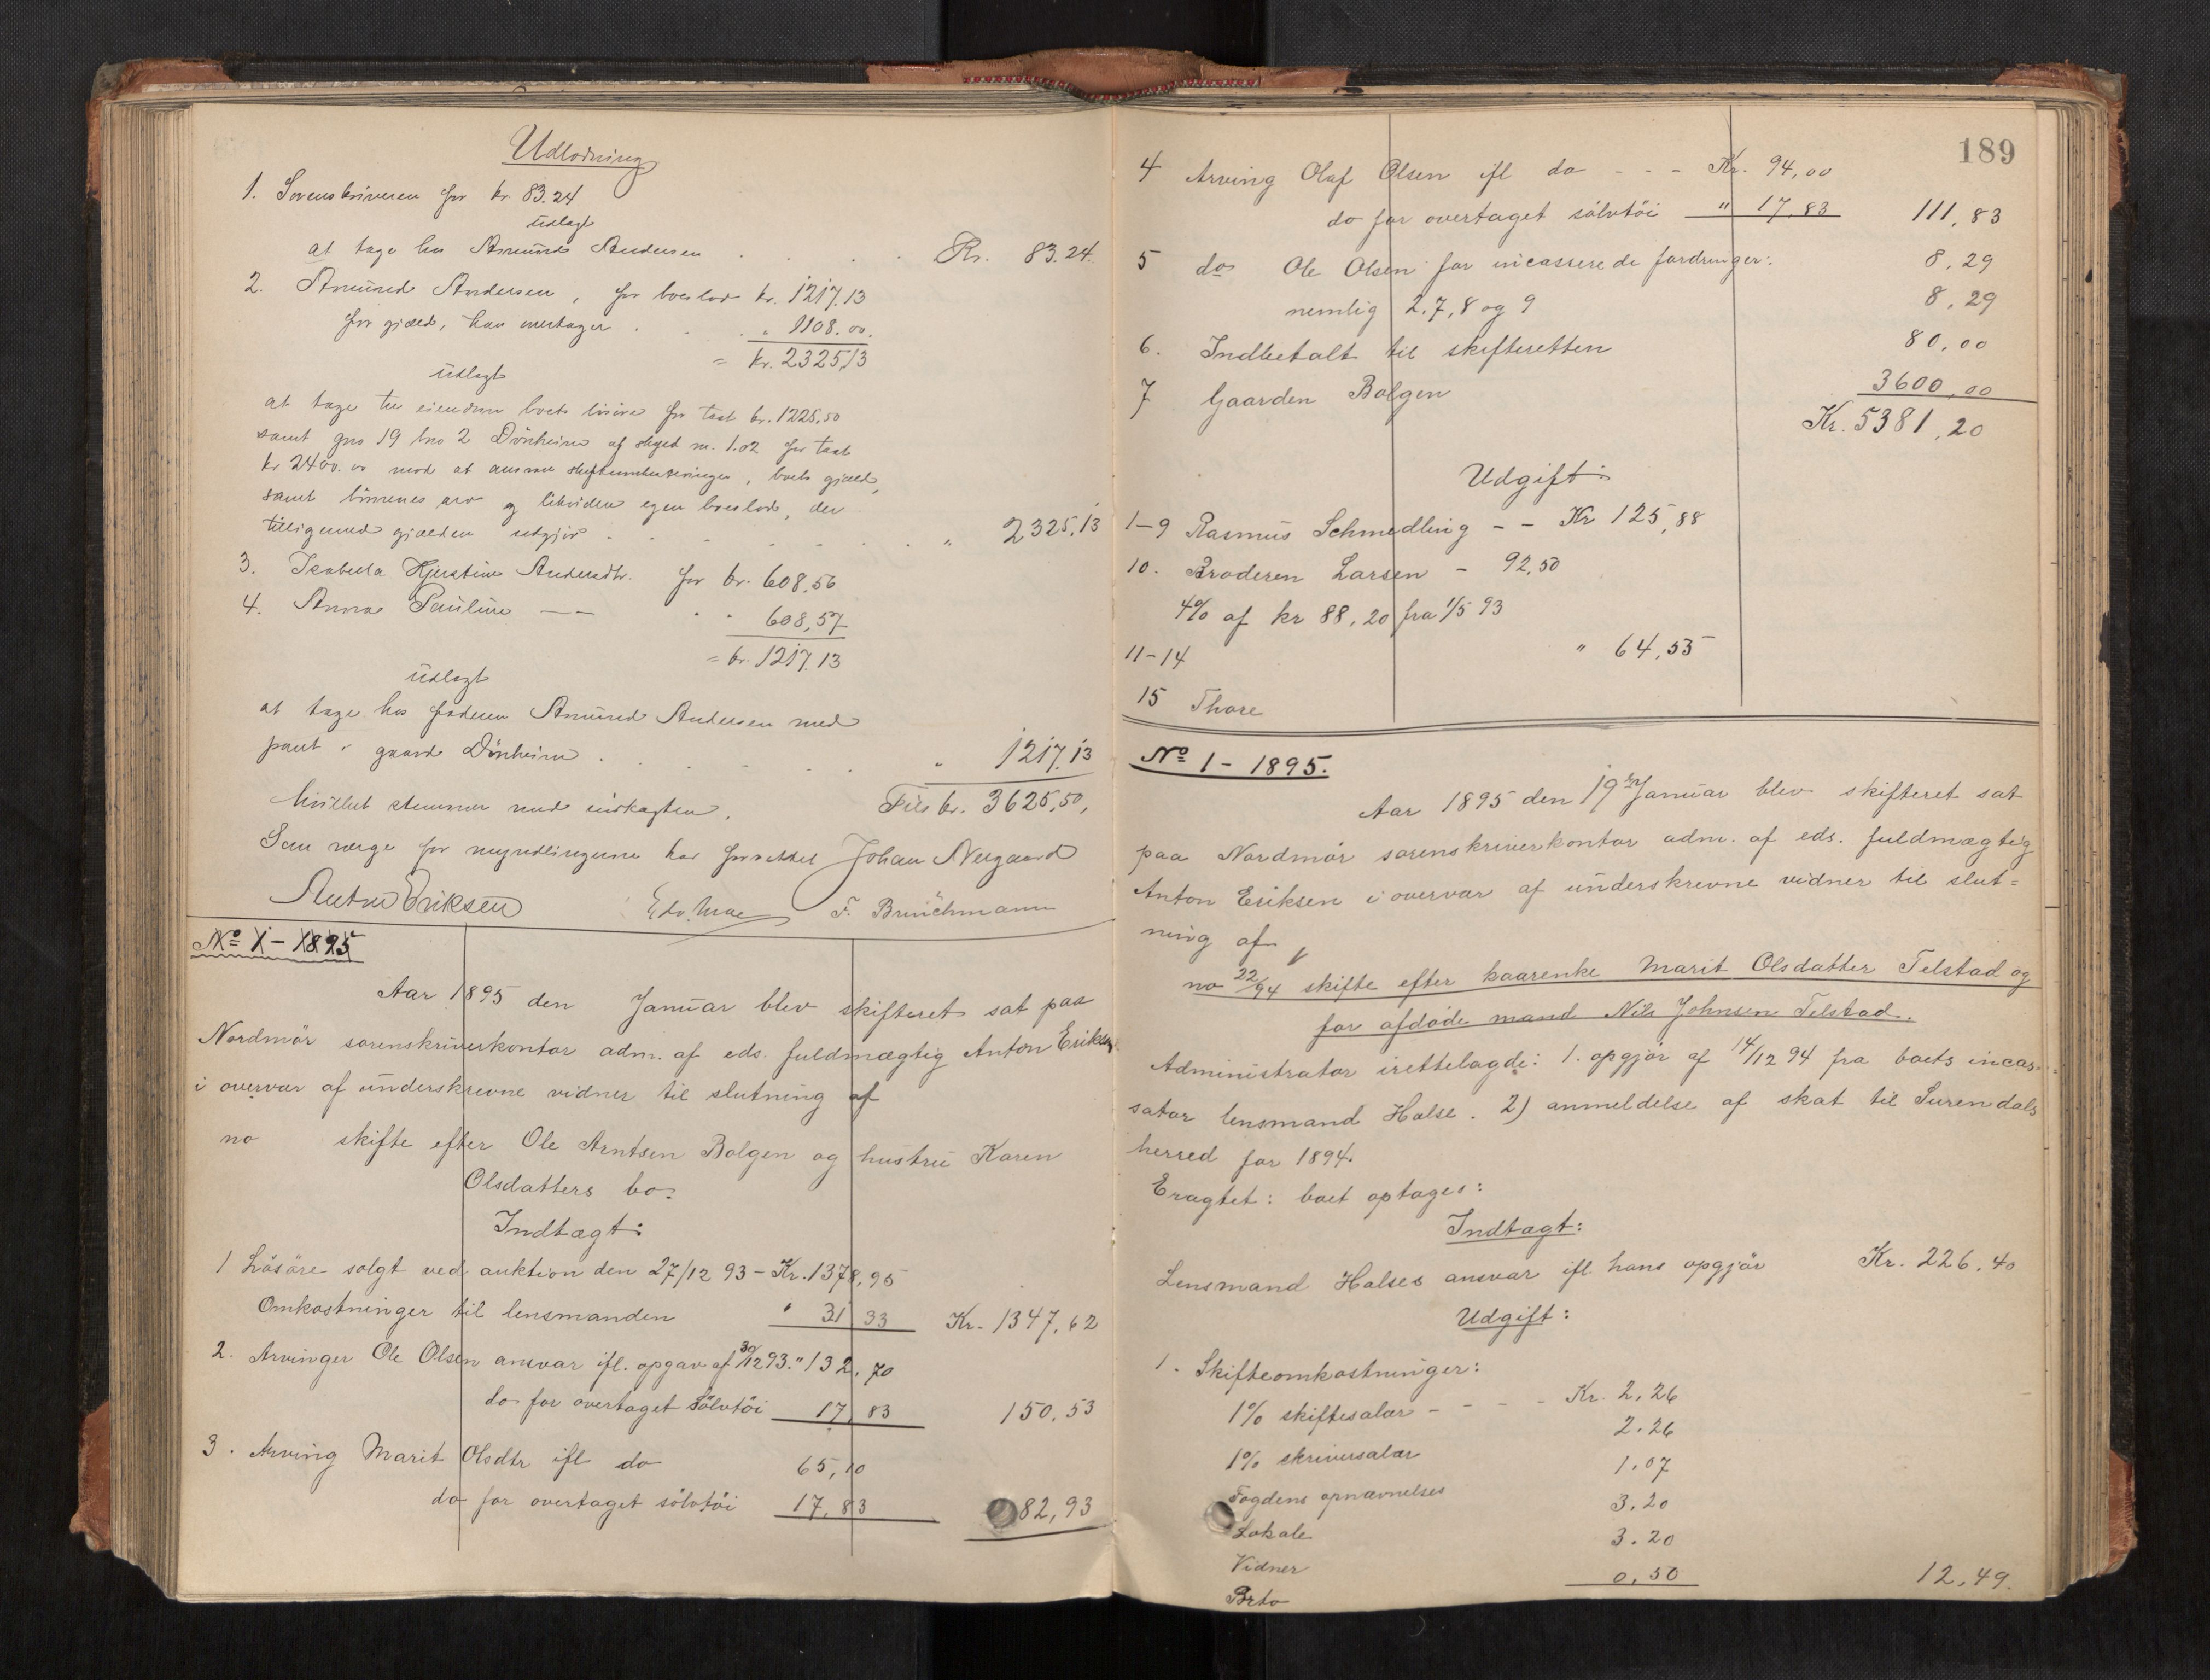 Udlodning
1. Sorenskriveren for kr. 83.24
udlagt
at tage hos Amund Andersen . . . . Kr. 83.24.
2. Amund Andersen, for boeslod kr. 1217.13
for gjæld, han overtager . . . " 1108.00.
= kr. 2325,13
udlagt
at tage til eiendom boets løsøre for taxt kr. 1225,50
samt gno 19 bno 2 Dönheim af skyld m. 1.02 for taxt
kr 2400.00 mod at ansvare skifteomkostninger, boets gjæld,
samt börnenes arv og beholde egen boeslod, der
tilligemed gjælden udgjör . . . . . . " 2325,13
3. Isabella Kjerstine Andersdtr. for kr. 608,56
4. Anna Pauline — — " " 608,57
= kr. 1217.13
udlagt
at tage hos faderen Amund Andersen med
pant i gaard Dönheim . . . . . " 1217.13
hvilket stemmer med indtægten. Tils kr. 3625,50,
Som værge for myndlingerne har forrettet Johan Neergaard
Anton Eriksen F. Brüchmann
No 1 - 1895
Aar 1895 den Januar blev skifteret sat paa
Nordmör sorenskriverkontor adm. af eds. fuldmægtig Anton Eriksen
i overvær af underskrevne vidner til slutning af
no skifte efter Ole Arntsen Bolgen og hustru Karen
Olsdatters bo:
Indtægt:
1 Lösöre solgt ved auktion den 27/12 93 - Kr. 1378,95
Omkostninger til lensmanden " 31,33 Kr. 1347,62
2. Arvinger Ole Olsen ansvar ifl. opgav af 30/12 93. " 132,70
do for overtaget sölvtöi 17,83 150,53
3. Arving Marit Olsdtr ifl do 65,10
do for overtaget sölvtöi 17,83 82,93
189
4 Arving Olaf Olsen ifl do - - - Kr. 94,00
do for overtaget sölvtöi " 17,83 111,83
5 do Ole Olsen for incasserede fordringer: 8,29
nemlig 2,7,8 og 9 8,29
6. Indbetalt til skifteretten 80,00
7 Gaarden Bolgen 3600,00
Kr. 5381,20
Udgift:
1-9 Rasmus Schmedling - - Kr 125,88
10. Broderen Larsen - 92,50
4% af kr 88,20 fra 1/5 93
11-14 " 64,55
15 Thore
No 1 - 1895.
Aar 1895 den 19de Januar blev skifteret sat
paa Nordmör sorenskriverkontor adm. af eds. fuldmægtig
Anton Eriksen i overvær af underskrevne vidner til slut=
ning af
no 22/94 skifte efter kaarenke Marit Olsdatter Telstad og
før afdöde mand Nils Johnsen Telstad.
Administrator irettelagde: 1. opgjör af 14/12 94 fra boets incas-
sator lensmand Halse. 2) anmeldelse af skat til Surendals
herred for 1894.
Eragtet: boet optages:
Indtægt:
Lensmand Halses ansvar ifl. hans opgjör Kr. 226.40
Udgift:
1. Skifteomkostninger:
1% skiftesalær - - - - Kr. 2,26
1% skriversalær 2.26
Fogdens opnævnelses 1.07
Lokale 3.20
Vidner 3.20
Brto 0,50 12,49.